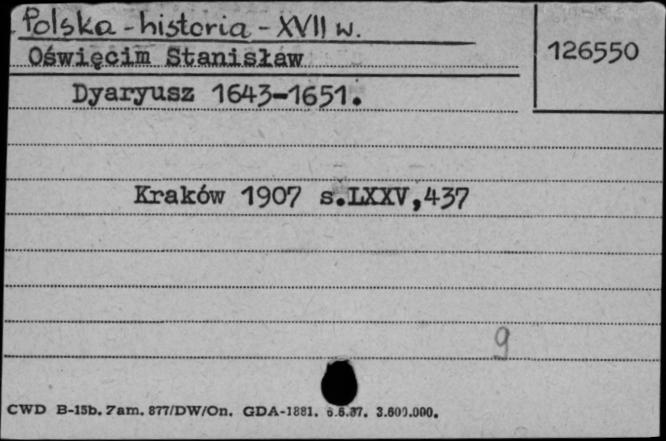 Polska - historia - XVII w.
126550
Oświęcim Stanisław
Dyaryusz 1643-1651.
Kraków 1907 s.LXXV,437
9
CWD B-15b. Zam. 877/DW/On. GDA-1881. 6.6.87. 3.600.000.